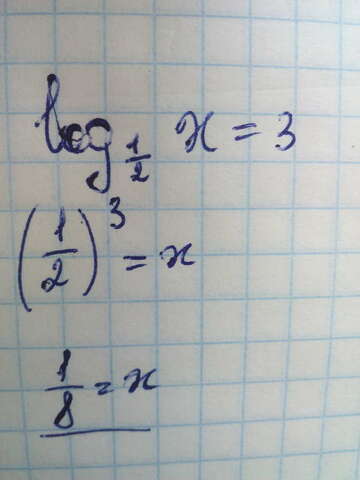 log_{1/2} x = 3
(1/2)^3 = x
1/8 = x